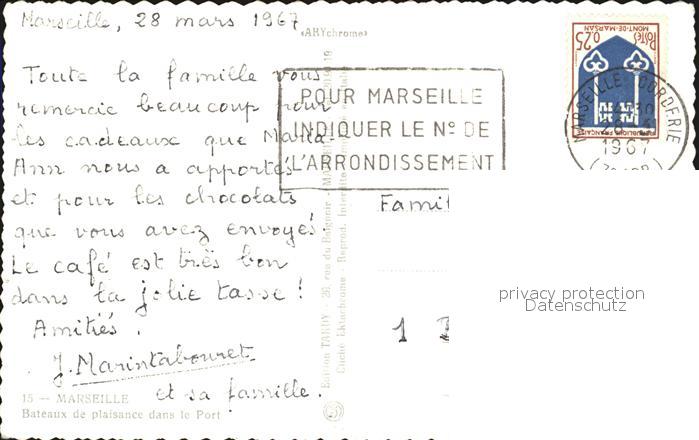 Marseille, 28 mars 1967
Toute la famille vous
remercie beaucoup pour
les cadeaux que Maria-
Ann nous a apportés
et pour les chocolats
que vous avez envoyés.
Le café est très bon
dans la jolie tasse !
Amitiés.
J. Marintabouret
et sa famille.
15 — MARSEILLE
Bateaux de plaisance dans le Port
«ARYchrome»
Edition TARDY - 20, rue du Baignoir - 
Cliché Ektachrome - Reprod. Interdite
POUR MARSEILLE
INDIQUER LE Nº DE
L'ARRONDISSEMENT
POSTES 0,25
MONT-DE-MARSAN
REPUBLIQUE FRANÇAISE
MARSEILLE CORDERIE
1967
Famil
1
privacy protection
Datenschutz